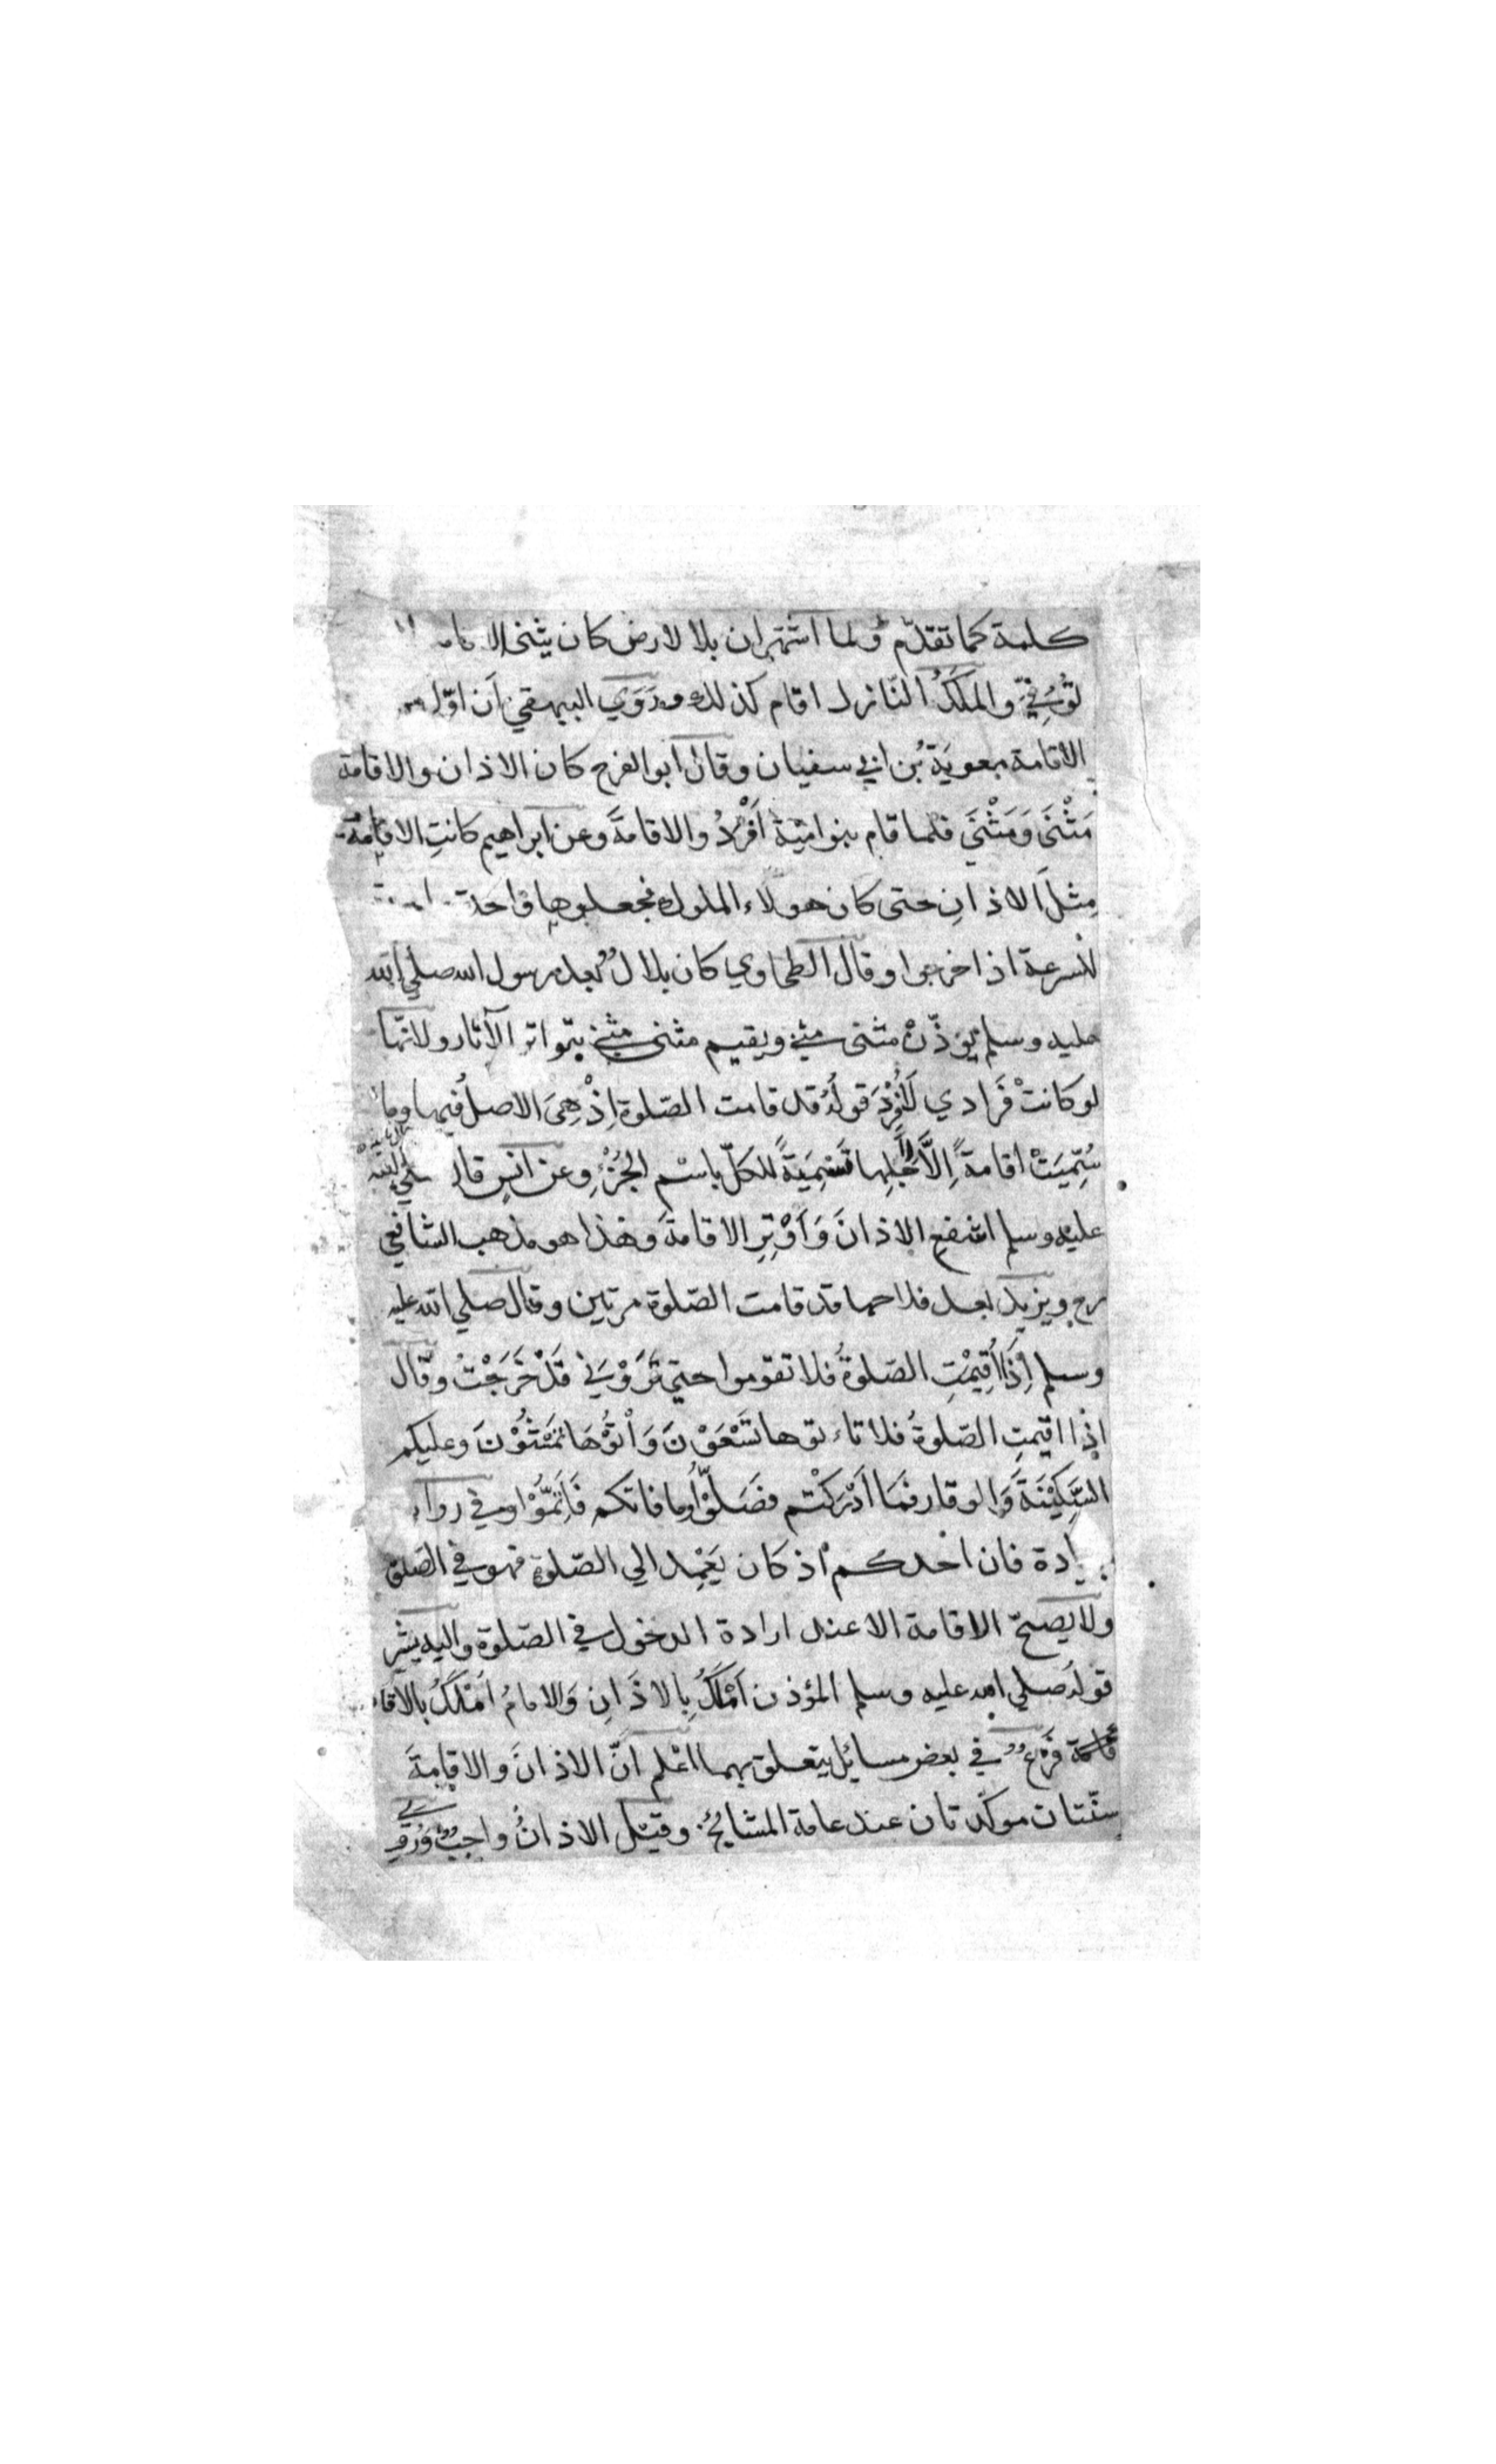 كلمة كما تقدّم ولما اشتهر ان بلالا رض كان يثنى الاقامة
تُوُفِّيَ والمَلَكُ النّازل اقام كذلك وروَي البيهقي اَن اوّل
الاقامة معويَة بُن ابي سفيان وقال ابو الفرج كان الاذان والاقامة
مَثْنَى وَمَثْنَى فلما قام بنوا ميّة اَفْرَدُوا الاقامةَ وعن ابراهيم كانتِ الاقامة
مِثلَ الاذانِ حتى كان هولاء الملوك فجعلوها واحدة
للسرعة اذا خرجوا وقال الطحاوي كان بلالٌ بعد رسول الله صلي الله
عليه وسلم يوذّنُ مثنى مثنى ويقيم مثنى مثنى بتواتر الآثار ولانّها
لو كانتْ فَرَادي لَاُفْرِدَ قولُه قد قامت الصّلوة اِذْ هِيَ الاصلُ فيها وما
سُمِّيَتْ اقامةً اِلَّا لِاَجْلِها تَسْمِيَةً للكلّ باسْم الجُزْءِ وعن انسٍ قال صلي الله
عليه وسلم اشفعِ الاذانَ وَاَوْتِرِ الاقامةَ وهذا هو مذهب الشافعي
رح ويزيد بعد فلاحها قد قامت الصّلوة مرتين وقال صلي الله عليه
وسلم اِذَا اُقِيْمْتِ الصّلوةُ فلا تقوموا حتي تَرَوْنِي قَدْ خَرَجْتُ وقال
اِذا اقيمتِ الصّلوةُ فلا تاءتوها تَسْعَوْنَ وَاْتُوْهَا تَمْشُوْنَ وعليكم
السَّكِيْنَةَ وَالوقار فمَا اَدْرَكْتم فصَلّوْا وما فاتكم فَاَتِمُّوْا وفي رواء
زيادة فان احدكم اذ كان يَعْمِد الي الصّلوة فهو في الصّلوة
ولا يصحّ الاقامة الا عند ارادة الدخول في الصّلوة واليه يشير
قولُه صلي الله عليه وسلم المؤذن اَمْلَكُ بِالاذَانِ وَالامامُ اَمْلَكُ بالاقا
فرعٌ في بعض مسائل يتعلق بهما اعْلم اَنَّ الاذانَ والاقامةَ
سنّتان موكّدتان عند عامة المشائخ وقيل الاذانُ واجبٌ